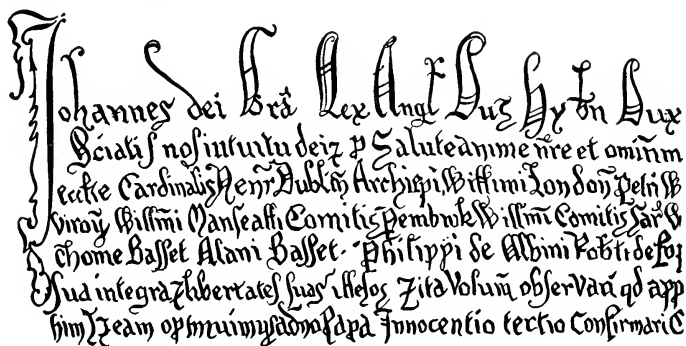 Johannes dei Grã Rex Angł Dũs Hybn Dux
Sciatis nos intuitu dei ꝛ p Salute anime nr̃e et omium
eccłie Cardinalis Henr̃ Dublin̄ Archiepi Willimi London Petri W
Willmi Marescalli Comitis Pembrok Willmi Comitis Sar̃ W
Thome Basset Alani Basset Philippi de Albini Robti de
sua integra ꝛ libertates suas illesas ꝛ ita Volum̃ observari qd app
optinuimus a dno Papa Innocentio tertio Confirmari